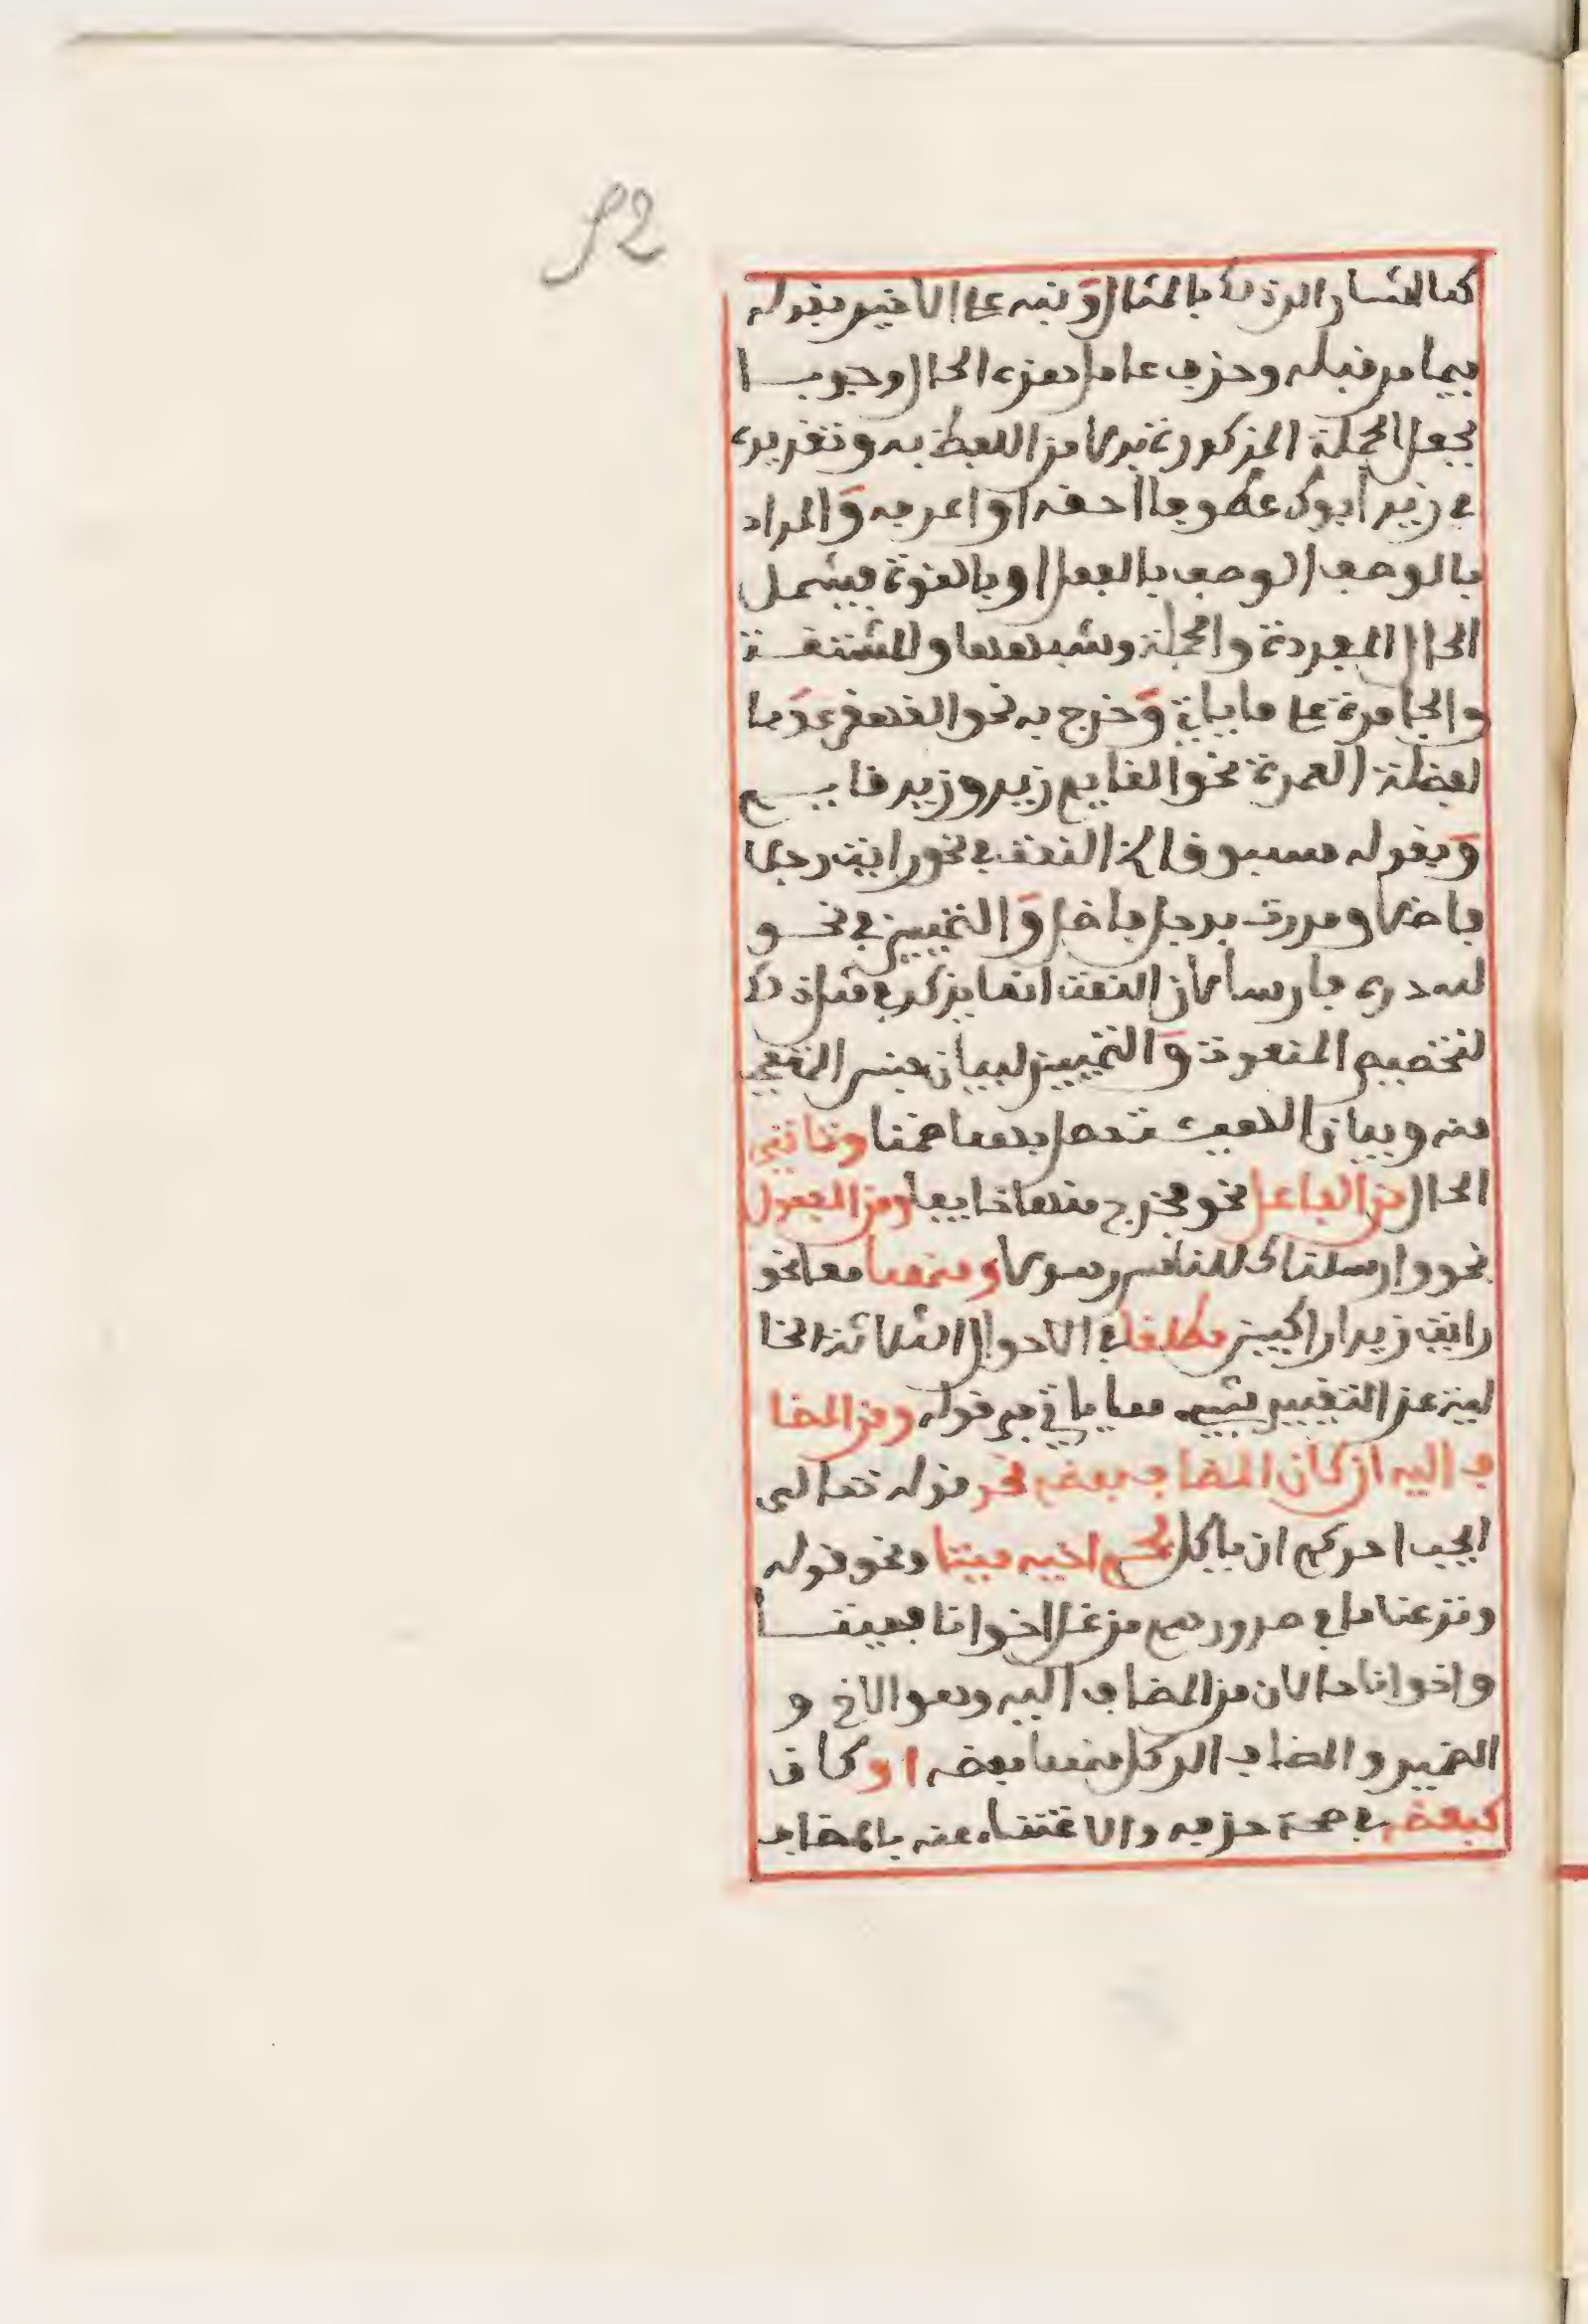 52
كما اشار الى ذلك بالمثال ونبه على الاخير بقوله
فيما مر قبله وحذف عامل هذه الحال وجوبا
بجعل الجملة المذكورة بدلا من اللفظ به وتقديره
في زيد ابوك عطوفا احقه او اعرفه والمراد
بالوصف الوصف بالفعل او بالقوة فيشمل
الحال المفردة والجملة وشبهها والمشتقة
والجامدة على ما ياتي وخرج به نحو القهقرى وبا
لفضلة العمدة نحو القايم زيد وزيد قايم
وبقوله مسوقا الخ النعت في نحو رايت رجلا
فاضلا ومررت برجل فاضل والتمييز في نحو
لله دره فارسا لان النعت انما يذكر في مثل ذلك
لتخصيص المنعوت والتمييز لبيان جنس المتعجب
منه وبيان الهيئة حصل بهما ضمنا وتاتي
الحال من الفاعل نحو فخرج منها خايفا ومن المفعول
نحو وارسلناك للناس رسولا ومنهما معا نحو
رايت زيدا راكبين مطلقا في الاحوال الثلاثة الخا
لية عن التقييد بشيء مما ياتي في قوله ومن المضا
ف اليه ان كان المضاف بعضه نحو قوله تعالى
ايحب احدكم ان ياكل لحم اخيه ميتا ونحو قوله
ونزعنا ما في صدورهم من غل اخوانا فميتا
واخوانا حالان من المضاف اليه وهو الاخ و
الضمير والمضاف الى كل منهما بعضه او كان
كبعضه في صحة حذفه والاغتناء عنه بالمضاف